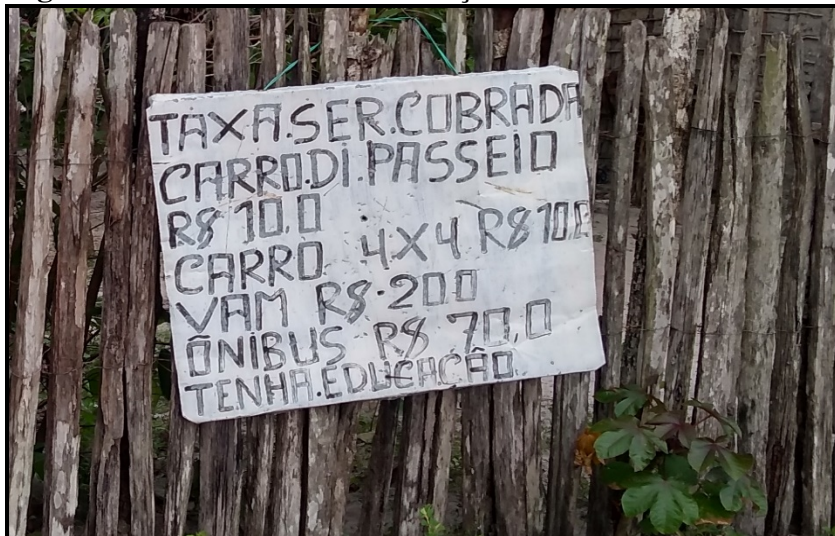 TAXA.SER.COBRADA
CARRO.DI.PASSEIO
R$ 10,0
CARRO 4X4 R$ 10,0
VAM R$.20,0
ÔNIBUS R$ 70,0
TENHA.EDUCAÇÃO.